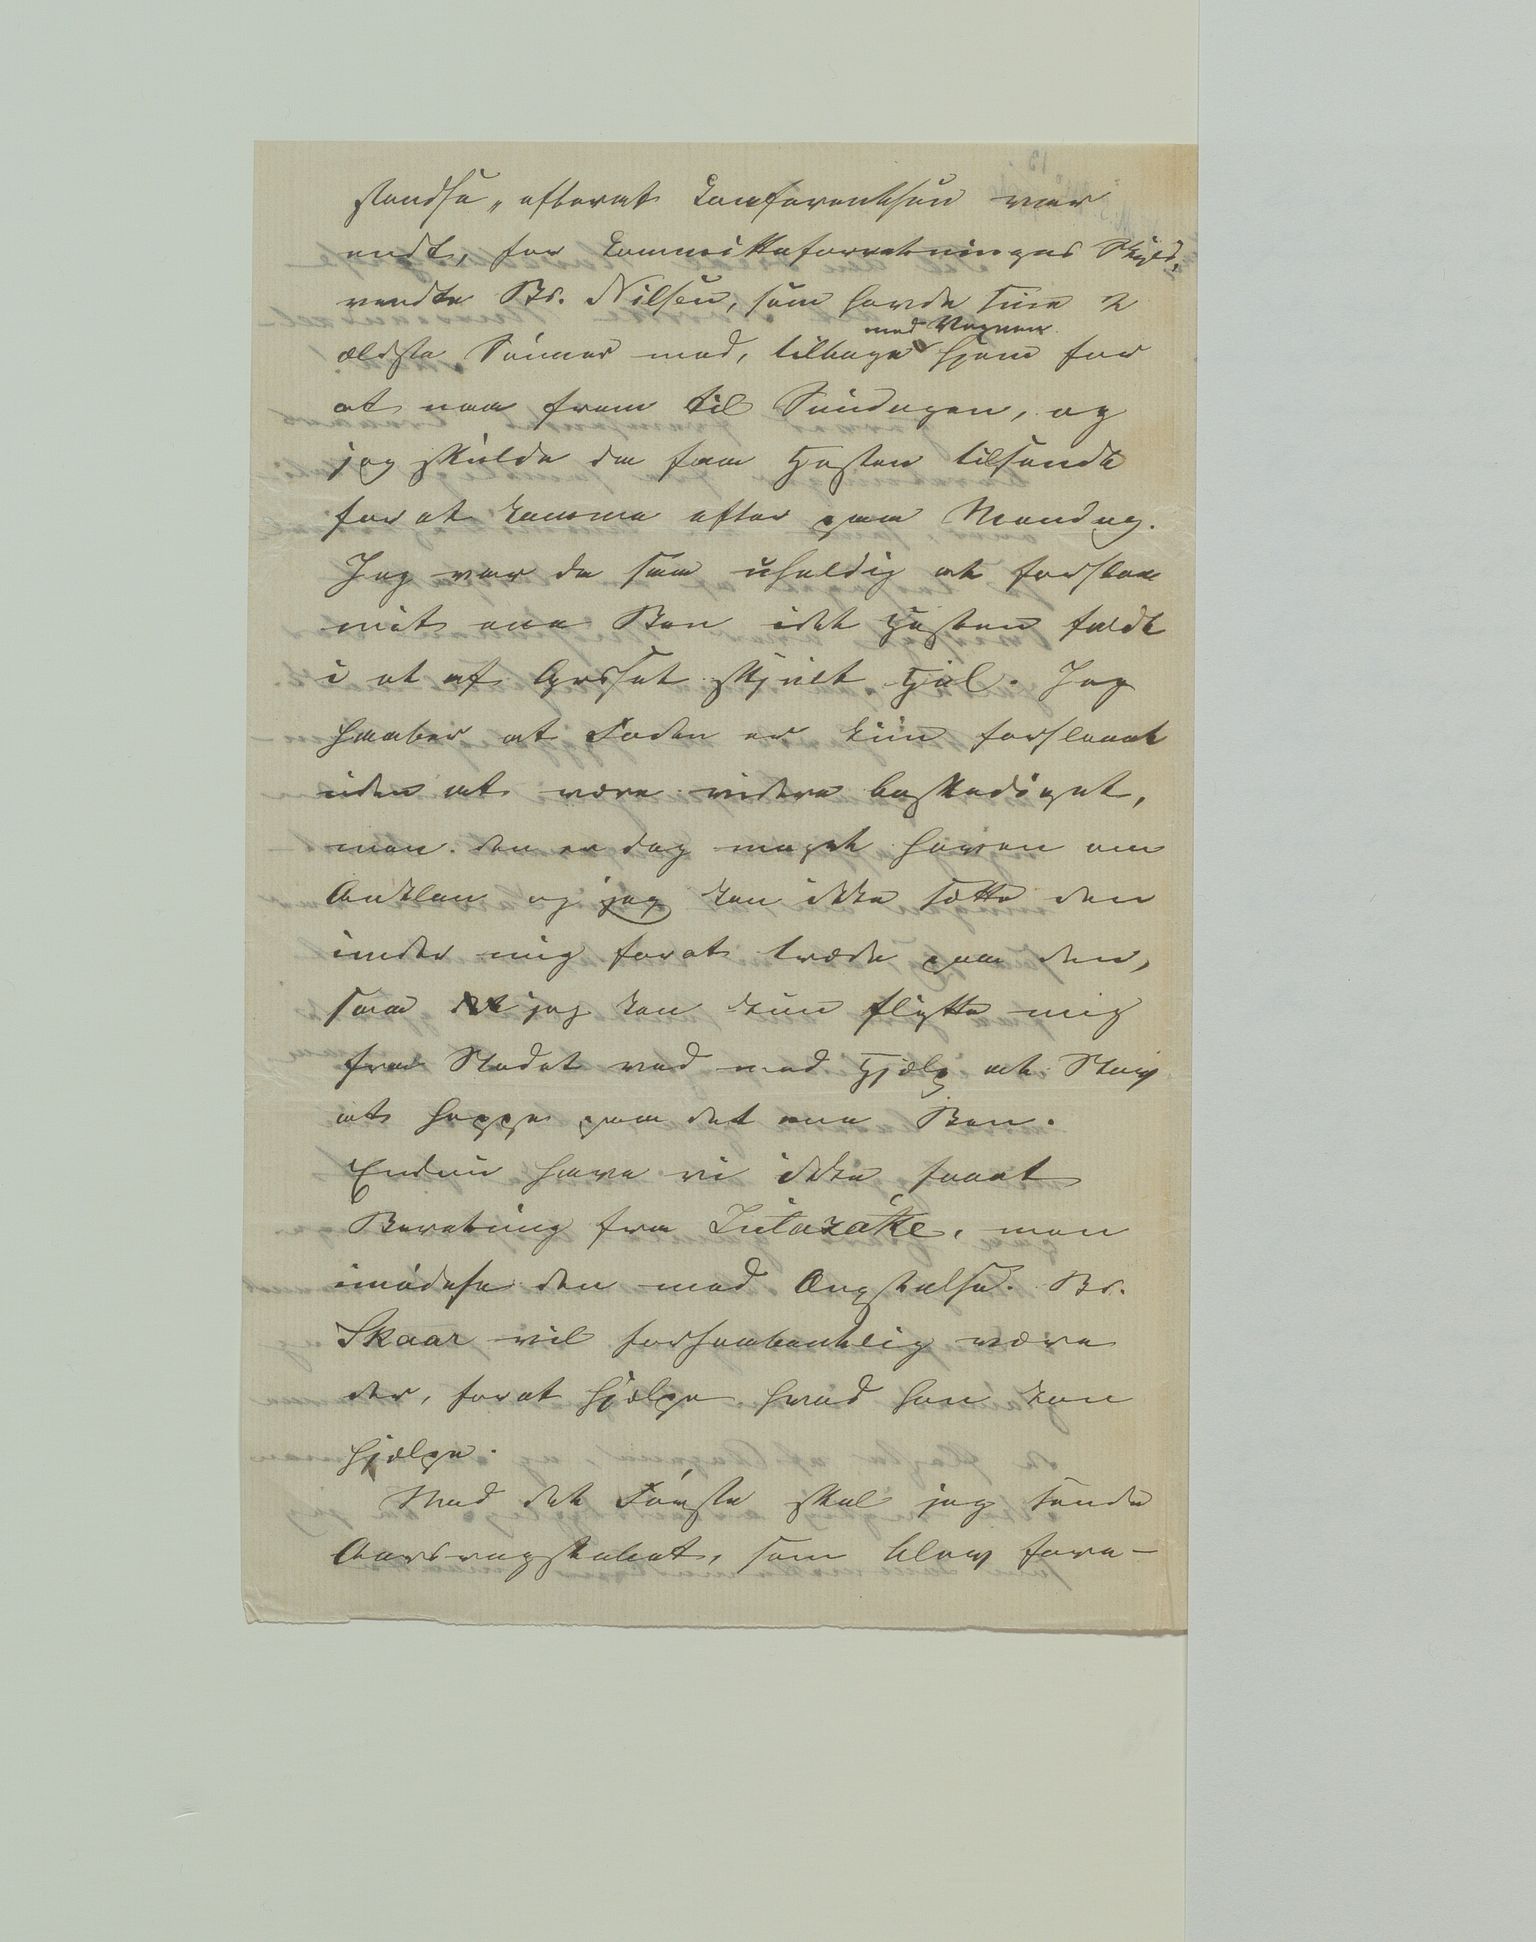 standse, efterat Konferentsen var
endt, for Kommitteforretningers Skyld,
vendte Br. Nilsen, som havde sine 2
ældste Sönner med, tilbage med Vognen hjem for
at naa frem til Söndagen, og
jeg skulde da faa Hesten tilsendt
for at komme efter paa Mandag.
Jeg var da saa uheldig at forslaae
mit ene Ben idet Hesten faldt
i et af Græsset skjult Hul. Jeg
haaber at Foden er kun forslaaet
uden at være videre beskadiget,
men den er dog meget hoven om
Anklen og jeg kan ikke sætte den
under mig forat træde paa den,
saa jeg kan kun flytte mig
fra Stedet ved med Hjælp at Stav
at hoppe paa det ene Ben.
Endnu have vi ikke faaet
Beretning fra men
imødese den med Ængstelse. Br.
Skaar vil forhaabentlig være
der, forat hjælpe hvad han kan
hjælpe.
Med det Første skal jeg sende
Aarsregnskabet, som blev fore-